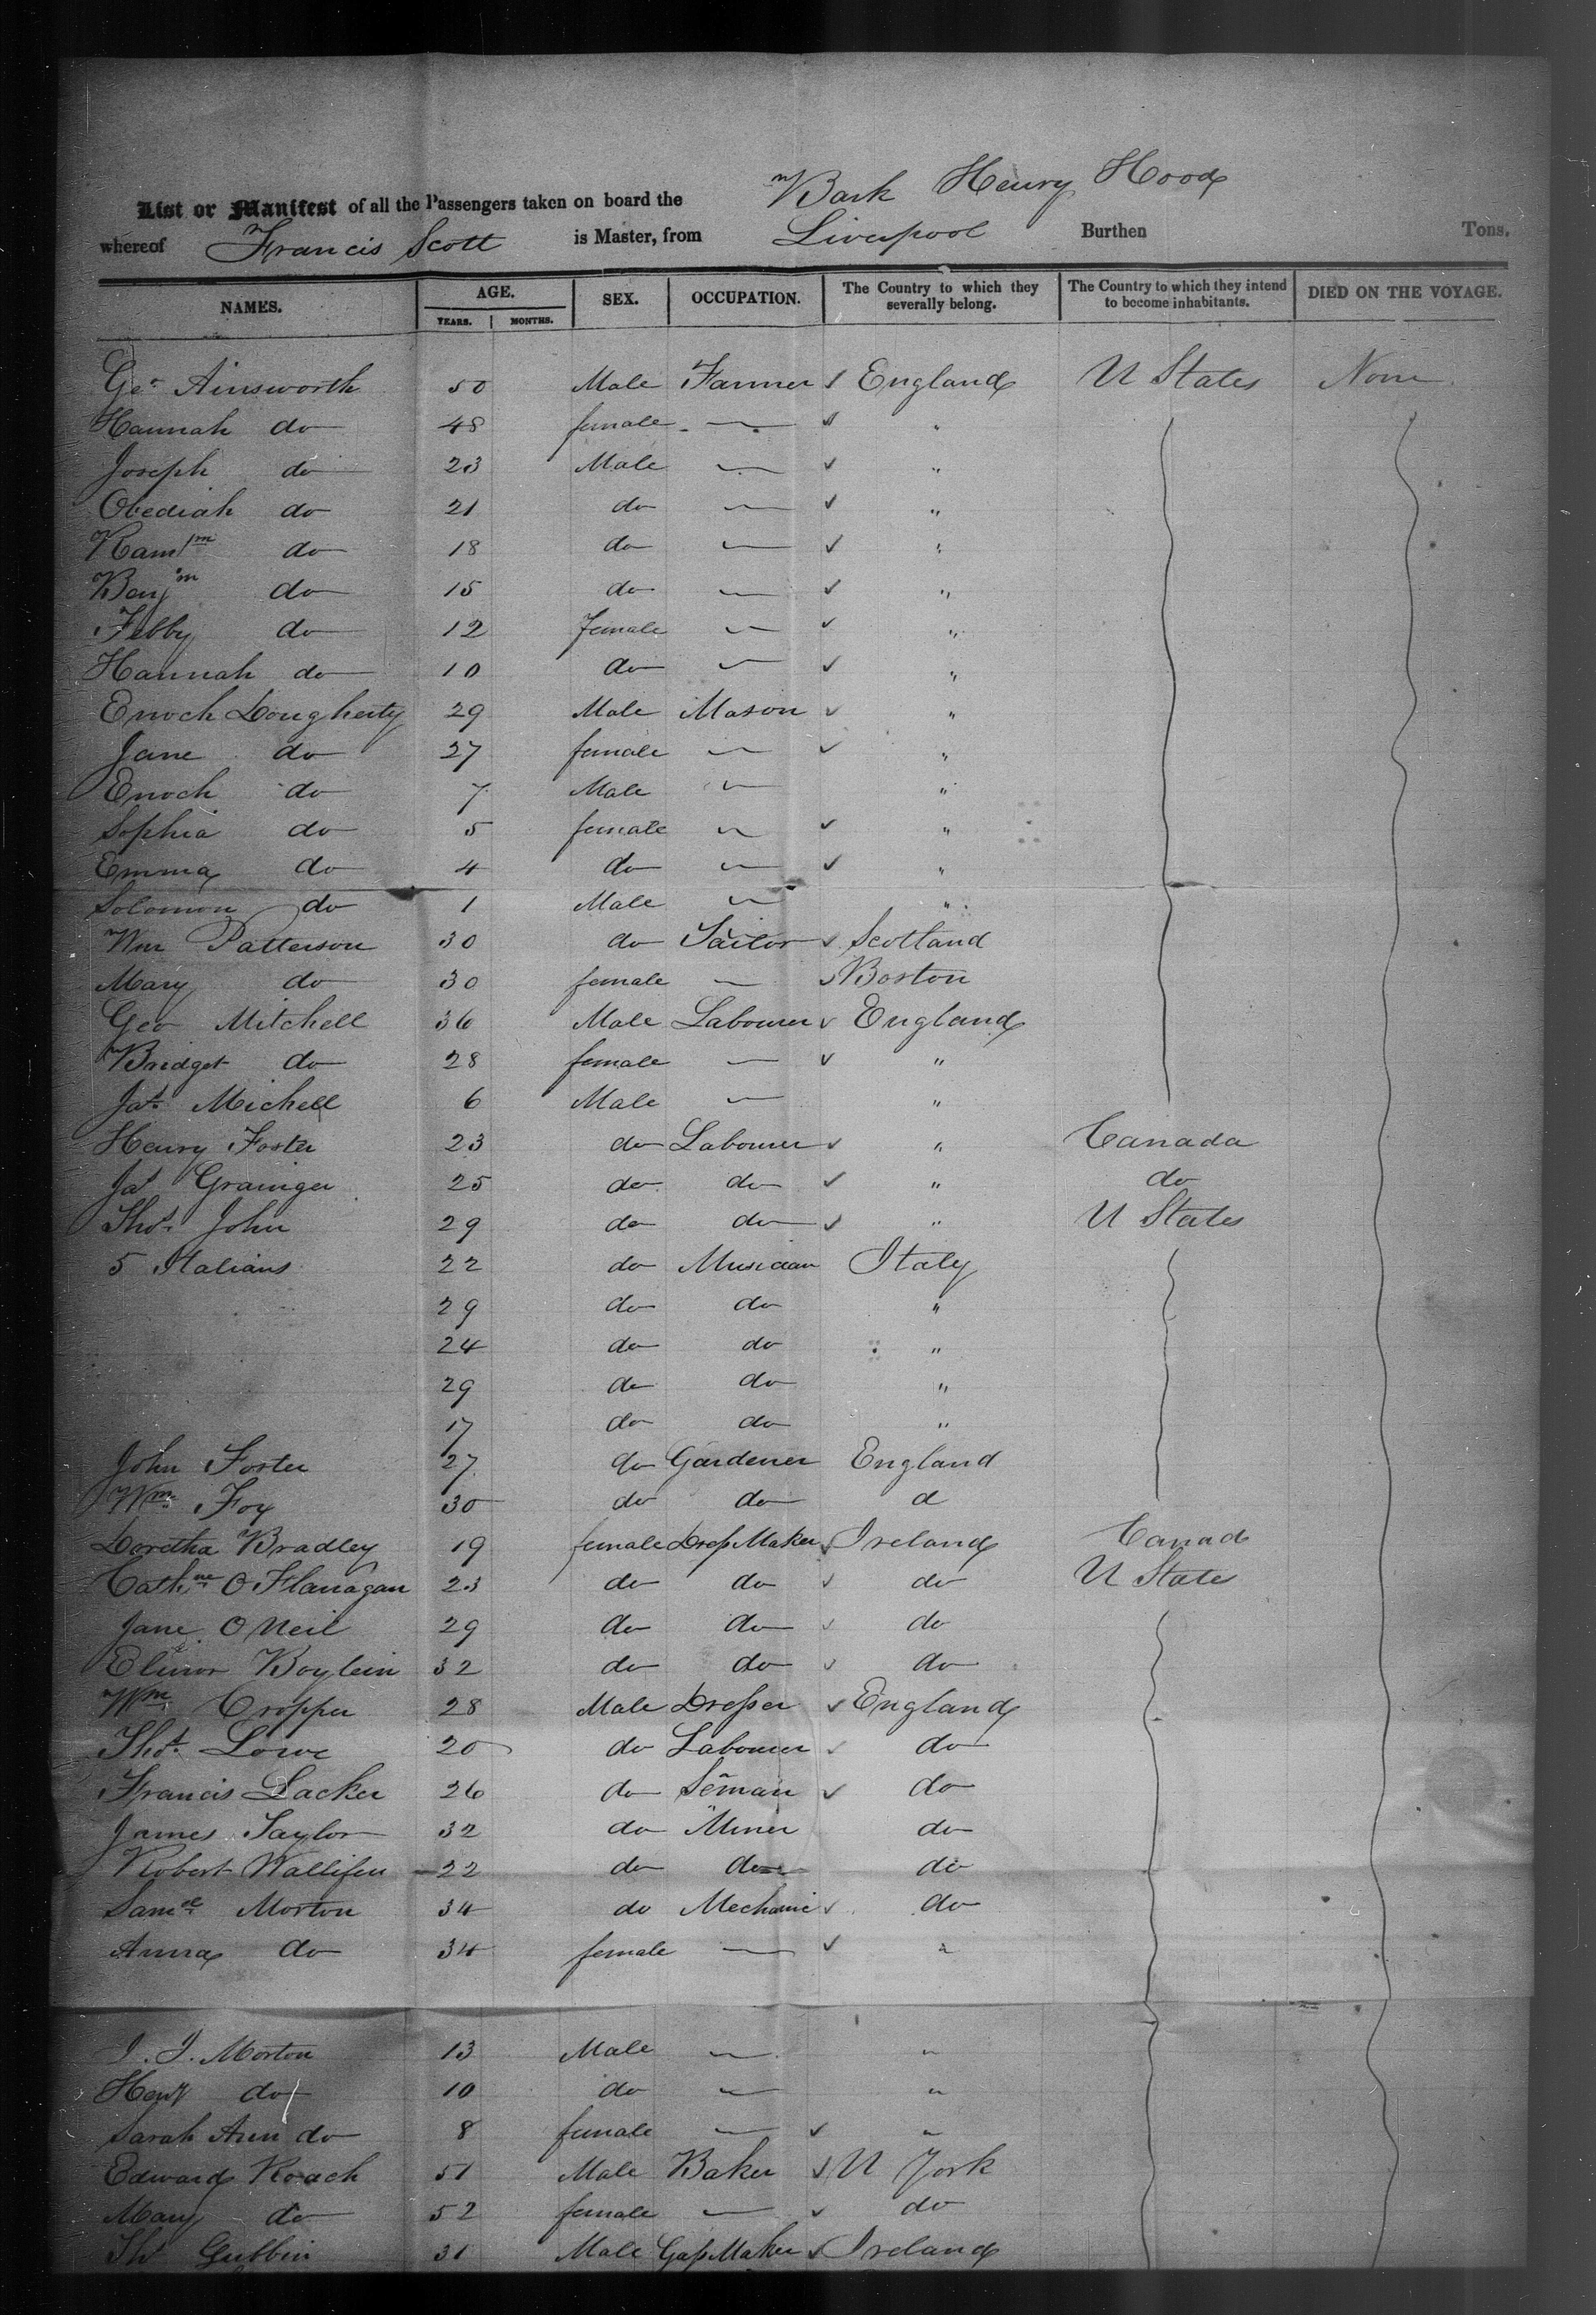 List or Manifest of all the Passengers taken on board the Bark Henry Hood
whereof Francis Scott is Master, from Liverpool Burthen Tons.
NAMES. AGE. YEARS. MONTHS. SEX. OCCUPATION. The Country to which they severally belong. The Country to which they intend to become inhabitants. DIED ON THE VOYAGE.
Geo Ainsworth 50 Male Farmer England U States None
Hannah do 48 female — "
Joseph do 23 Male — "
Obediah do 21 do — "
do 18 do — "
Benjm do 15 do — "
Febby do 12 female — "
Hannah do 10 do — "
Enoch Dougherty 29 Male Mason "
Jane do 27 female — "
Enoch do 7 Male — "
Sophia do 5 female — "
Emma do 4 do — "
Solomon do 1 Male — "
Wm Patterson 30 do Tailor Scotland
Mary do 30 female — Boston
Geo Mitchell 36 Male Labourer England
Bridget do 28 female — "
Jas Michell 6 Male — "
Henry Foster 23 do Labourer " Canada
Jas Grainger 25 do do " do
Thos John 29 do do " U States
5 Italians 22 do Musician Italy
29 do do "
24 do do "
29 do do "
17 do do "
John Foster 27 do Gardener England
Wm Foy 30 do do d
Doretha Bradley 19 female Dress Maker Ireland Canad
Cathne O Flanagan 23 do do do U States
Jane O Neil 29 do do do
Elinor Boylein 32 do do do
Wm Cropper 28 Male Dresser England
Thos Lowe 20 do Labourer do
Francis Lacker 26 do Seman do
James Taylor 32 do Miner do
Robert 22 do do do
Saml Morton 34 do Mechanic do
Anna do 34 female — "
J. J. Morton 13 Male — "
Heny do 10 do — "
Sarah Ann do 8 female — "
Edward Roach 51 Male Baker N York
Mary do 52 female — do
Ths Gubbin 31 Male Maker Ireland